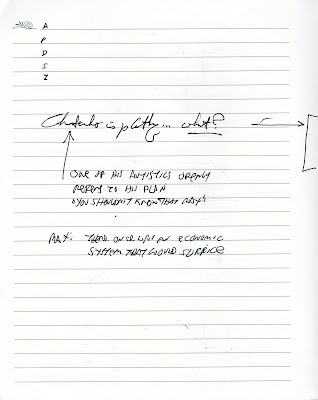 A
P
D
S
Z
is plotting... what?
ONE OF HIS AUTISTICS OPENLY
REFERS TO HIS PLAN
"YOU SHOULDN'T KNOW THAT MAX"
MAX: THERE ONCE WAS AN ECONOMIC
SYSTEM THAT WOULD SURFACE